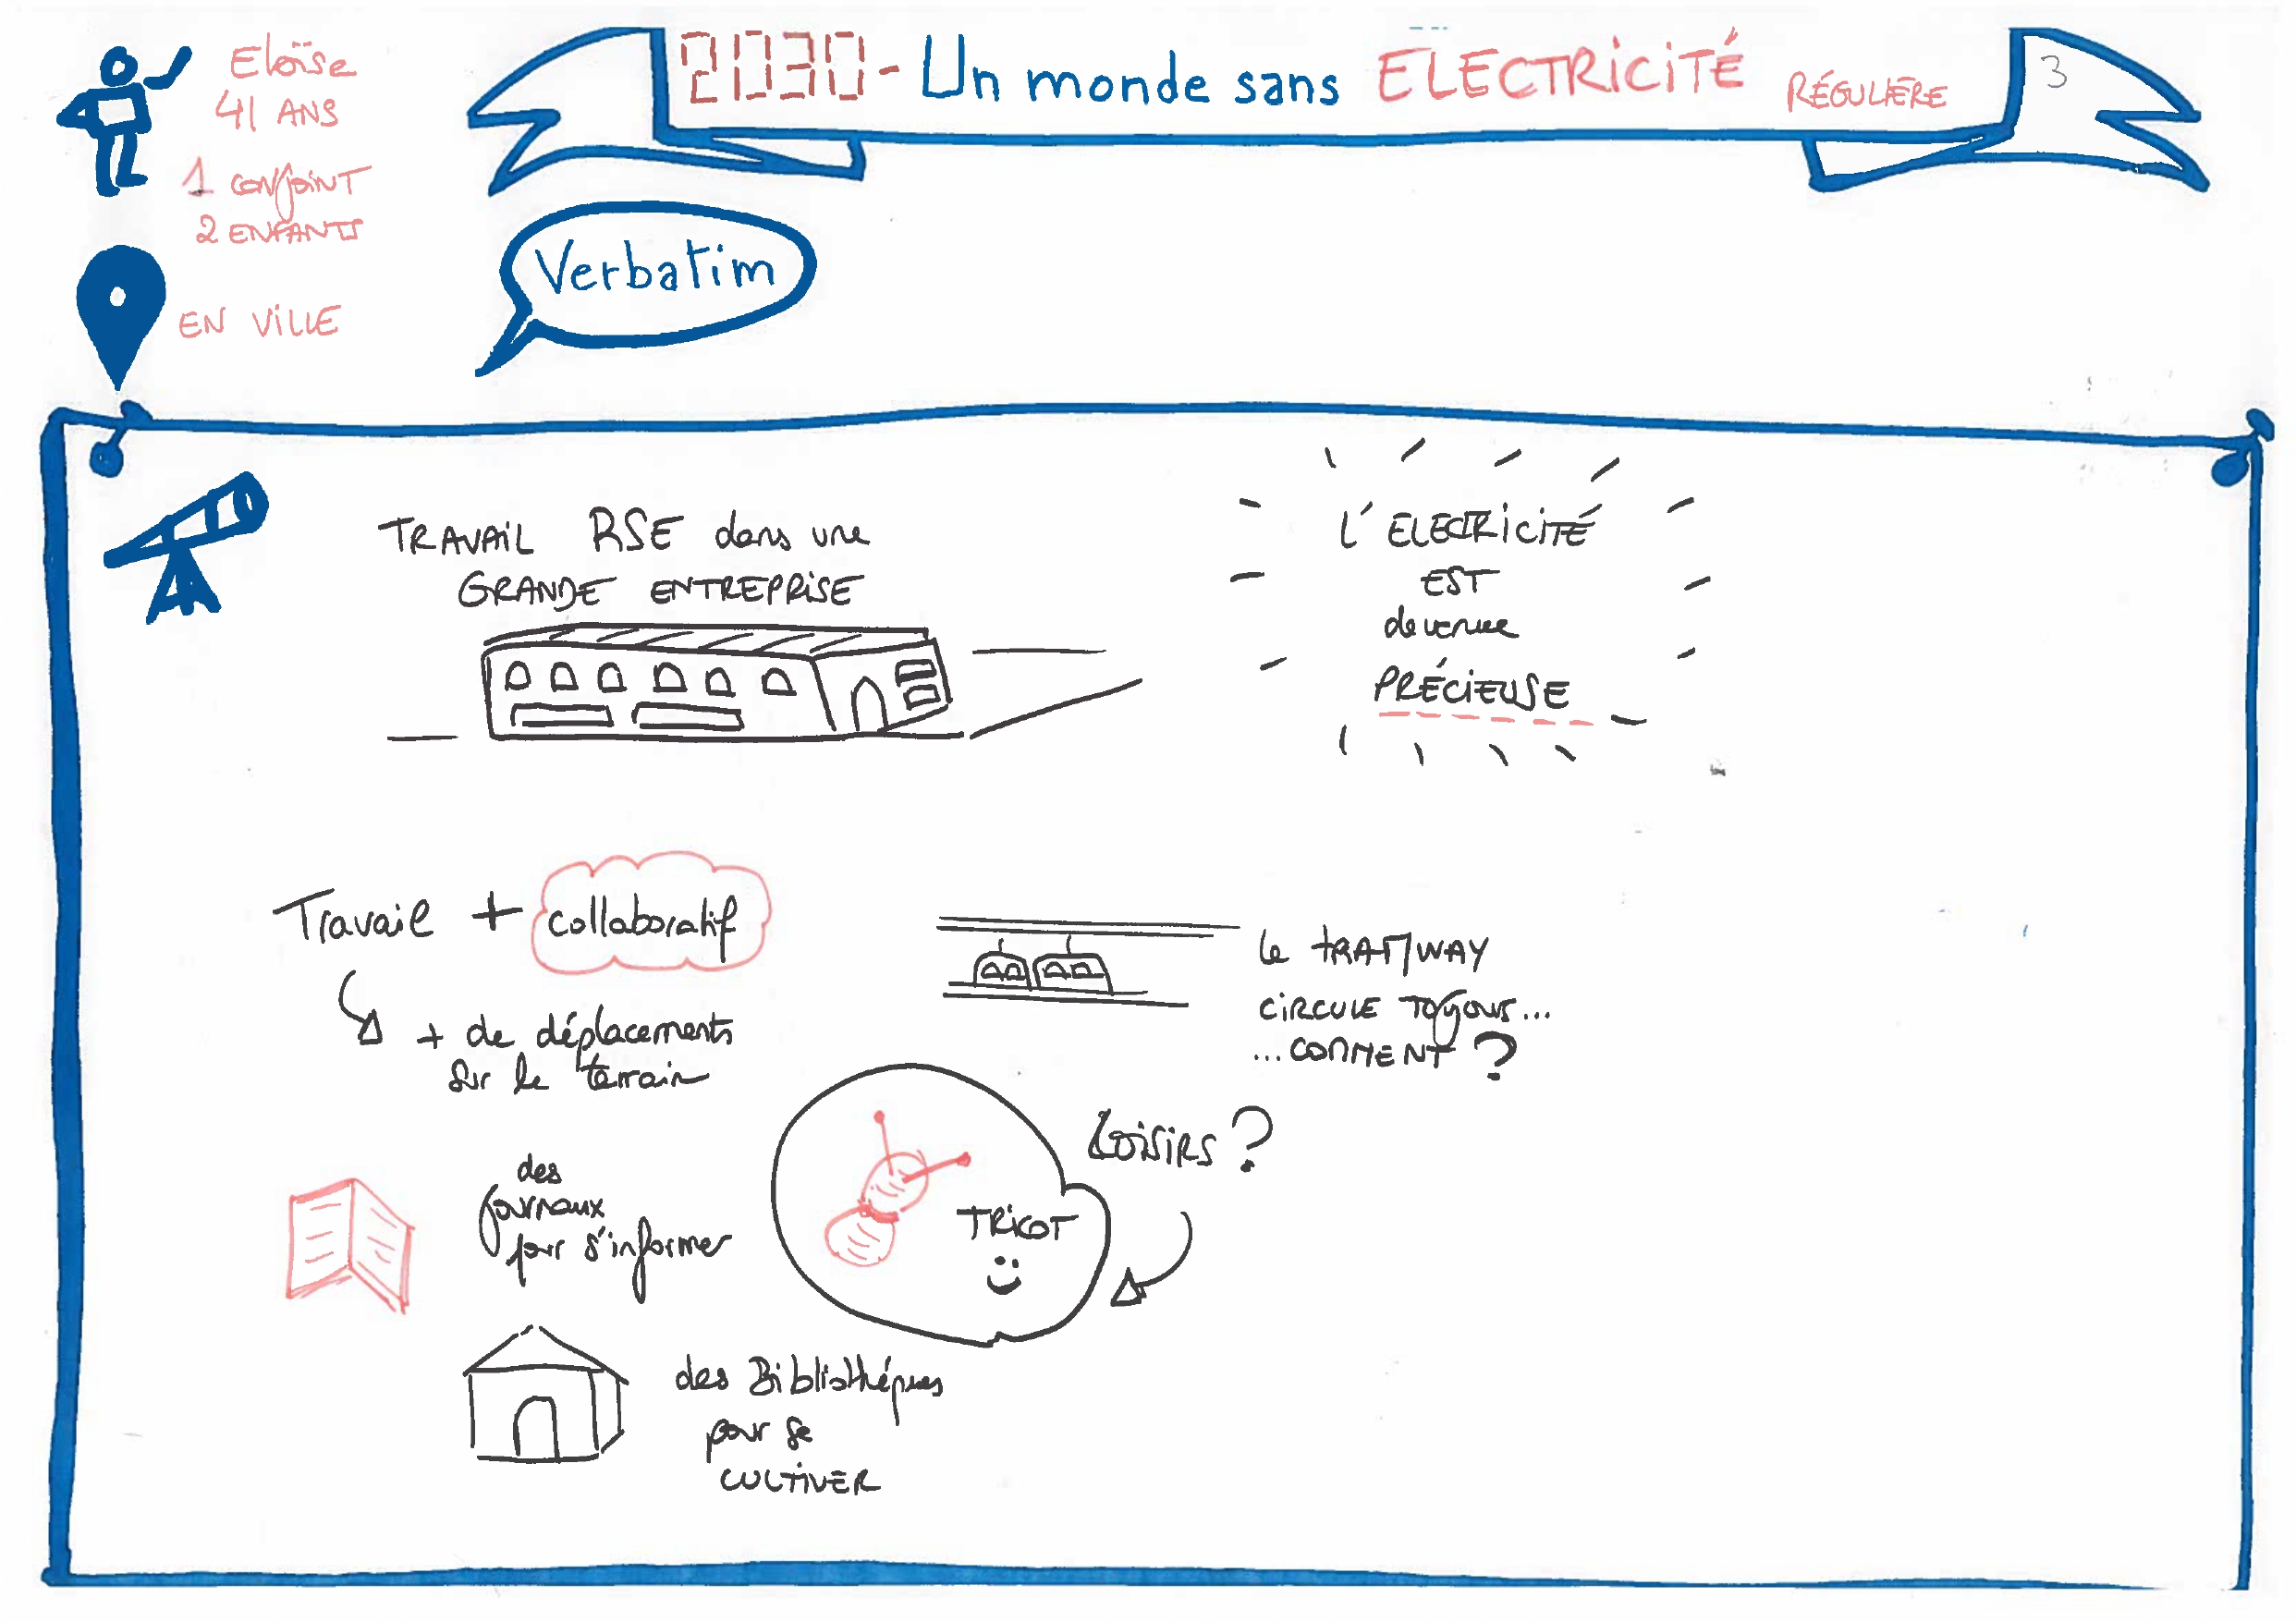 Eloïse
41 ANS
1 conjoint
2 ENFANTS
EN VILLE
2030 - Un monde sans ELECTRICITÉ RÉGULIÈRE
3
Verbatim
TRAVAIL RSE dans une
GRANDE ENTREPRISE
L'ELECTRICITÉ
EST
devenue
PRÉCIEUSE
Travail + collaboratif
+ de déplacements
sur le terrain
le TRAMWAY
CIRCULE TOUJOURS...
...COMMENT ?
LOISIRS ?
TRICOT
des
journaux
pour s'informer
des Bibliothéques
pour se
CULTIVER